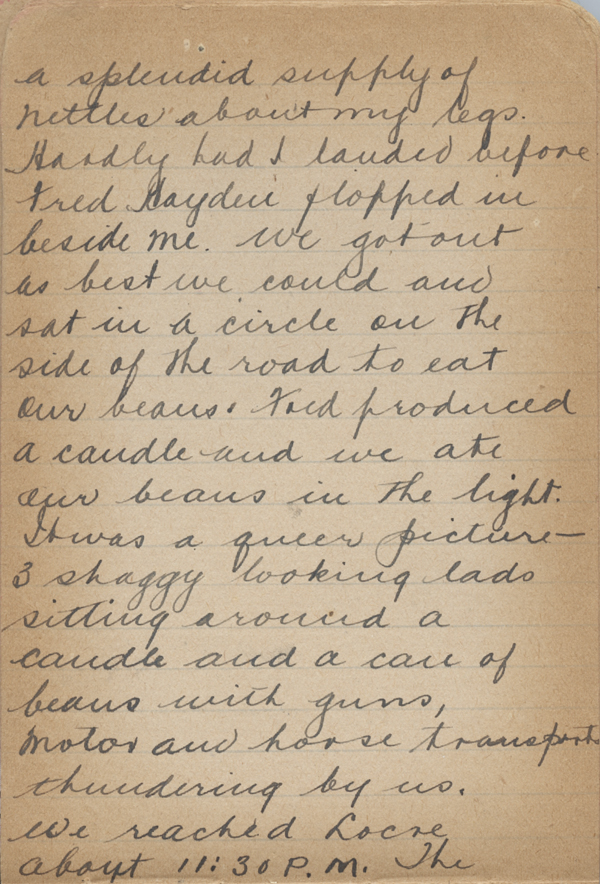 a splendid supply of
nettles about my legs.
Hardly had I landed before
Fred Hayden flopped in
beside me. We got out
as best we could and
sat in a circle on the
side of the road to eat
our beans. Fred produced
a candle and we ate
our beans in the light.
It was a queer picture—
3 shaggy looking lads
sitting around a
candle and a can of
beans with guns,
motor and horse transports
thundering by us.
We reached Locre
about 11:30 P.M. The